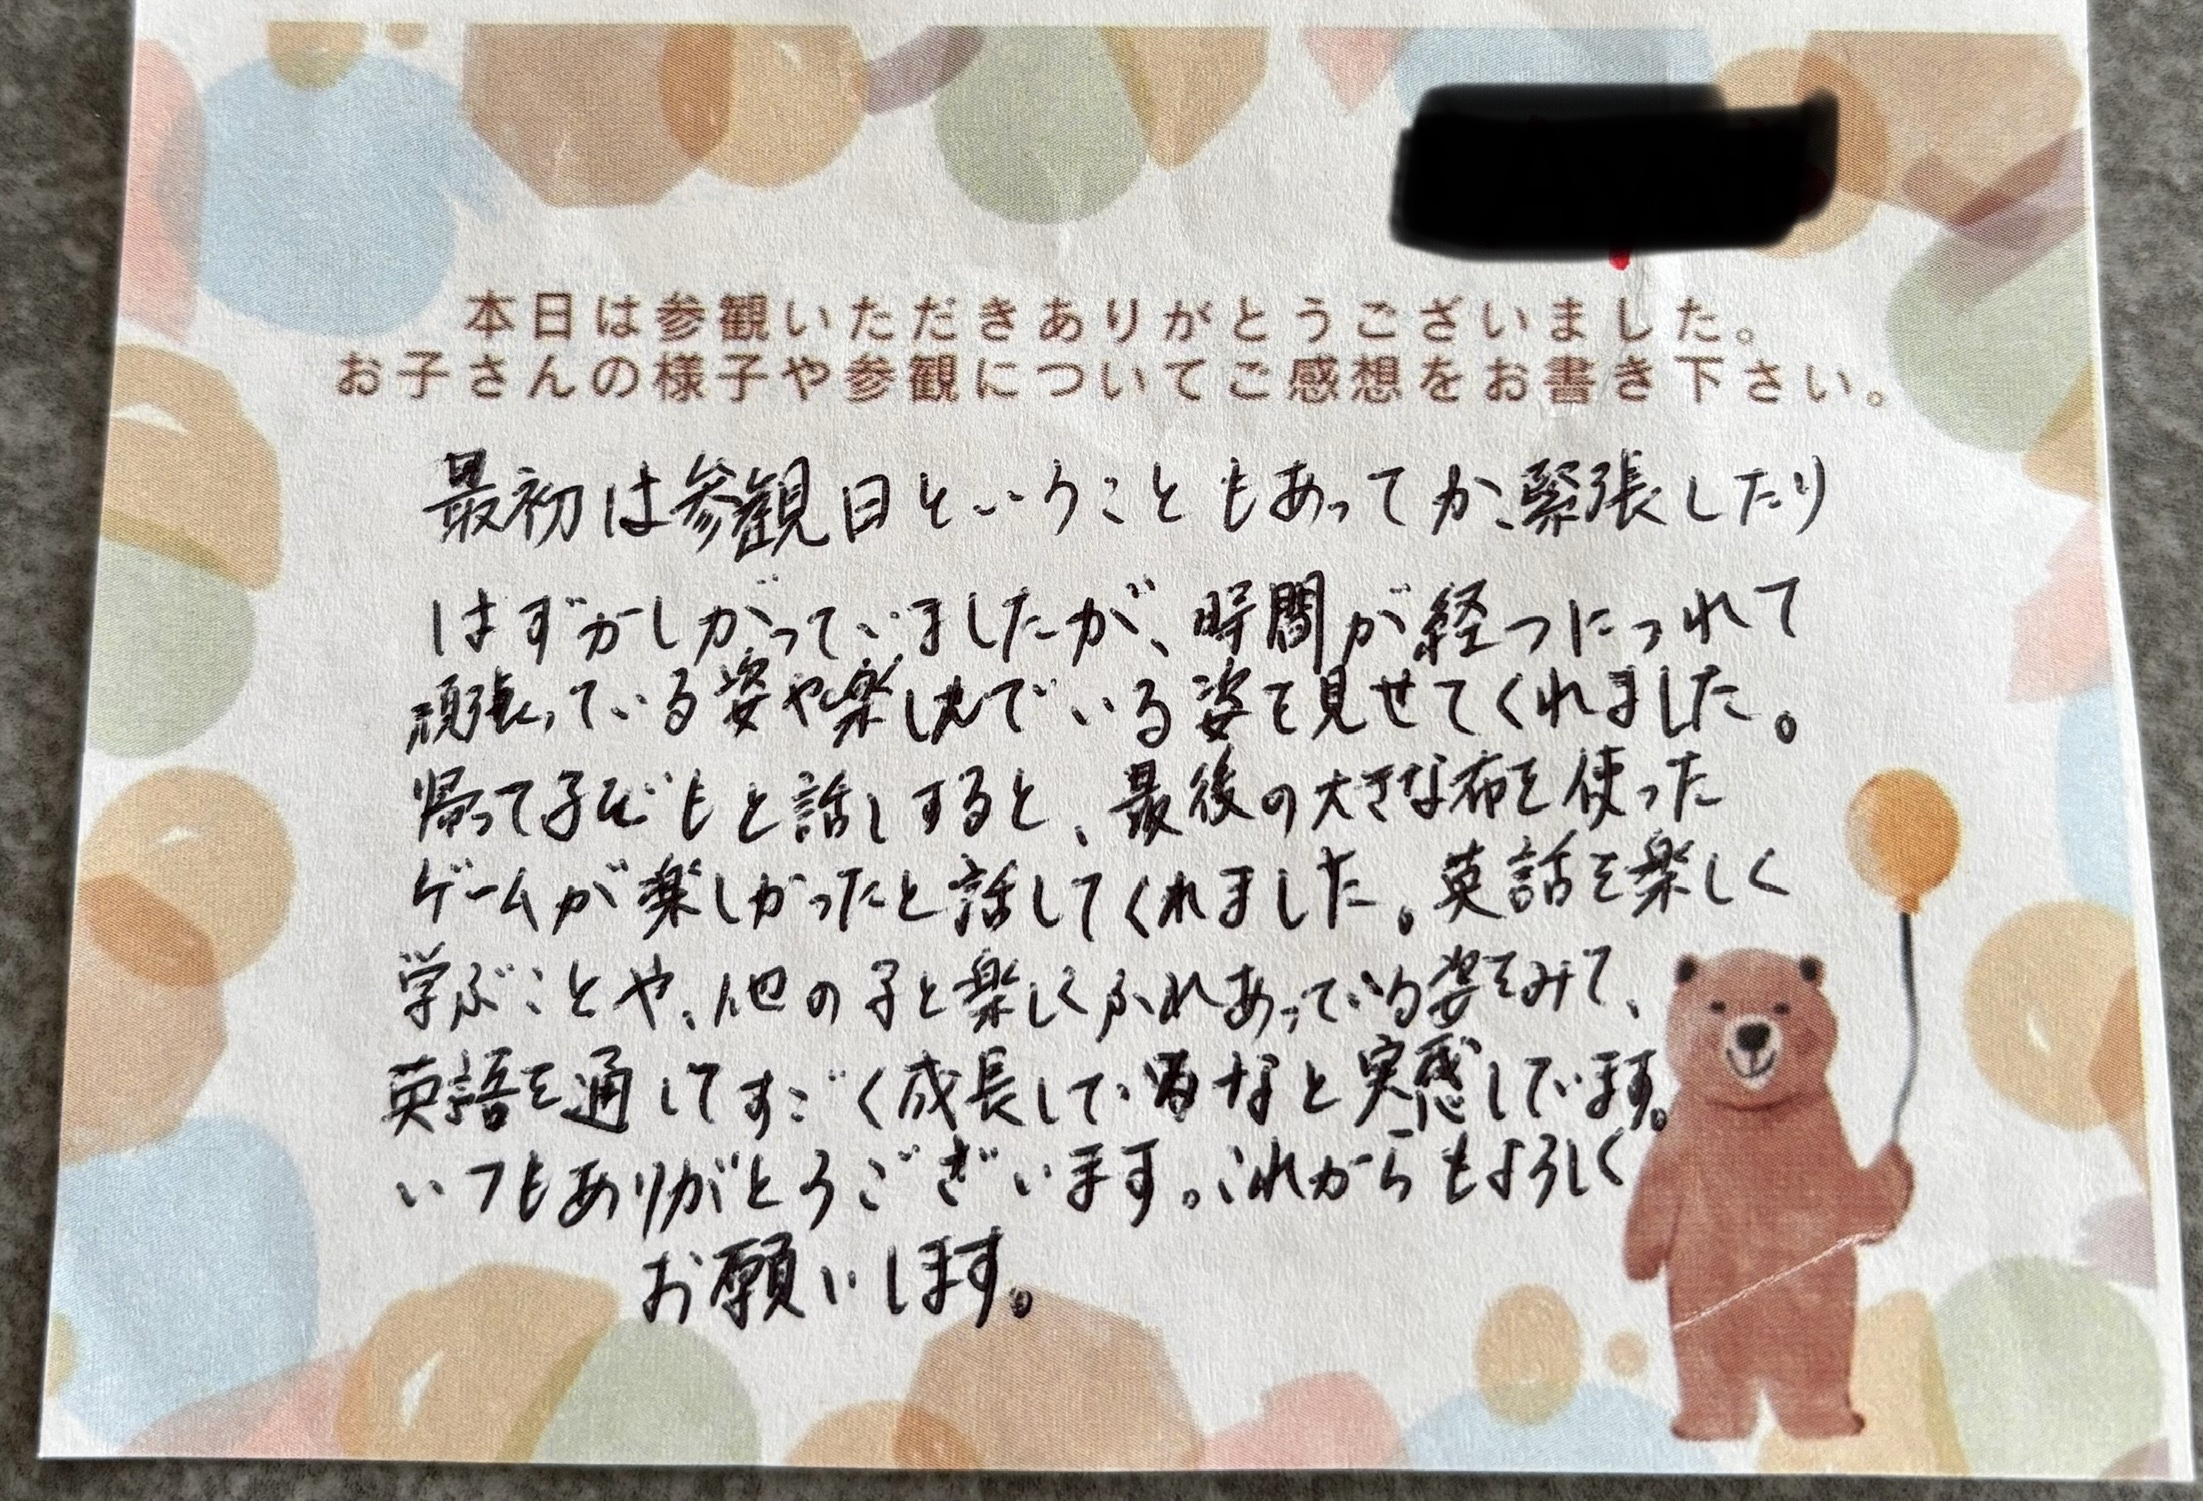 本日は参観いただきありがとうございました。
お子さんの様子や参観についてご感想をお書き下さい。
最初は参観日ということもあってか、緊張したり
はずかしがっていましたが、時間が経つにつれて
頑張っている姿や楽しんでいる姿を見せてくれました。
帰って子どもと話しすると、最後の大きな布を使った
ゲームが楽しかったと話してくれました。英話を楽しく
学ぶことや、他の子と楽しくふれあっている姿をみて、
英語を通してすごく成長しているなと実感しています。
いつもありがとうございます。これからもよろしく
お願いします。